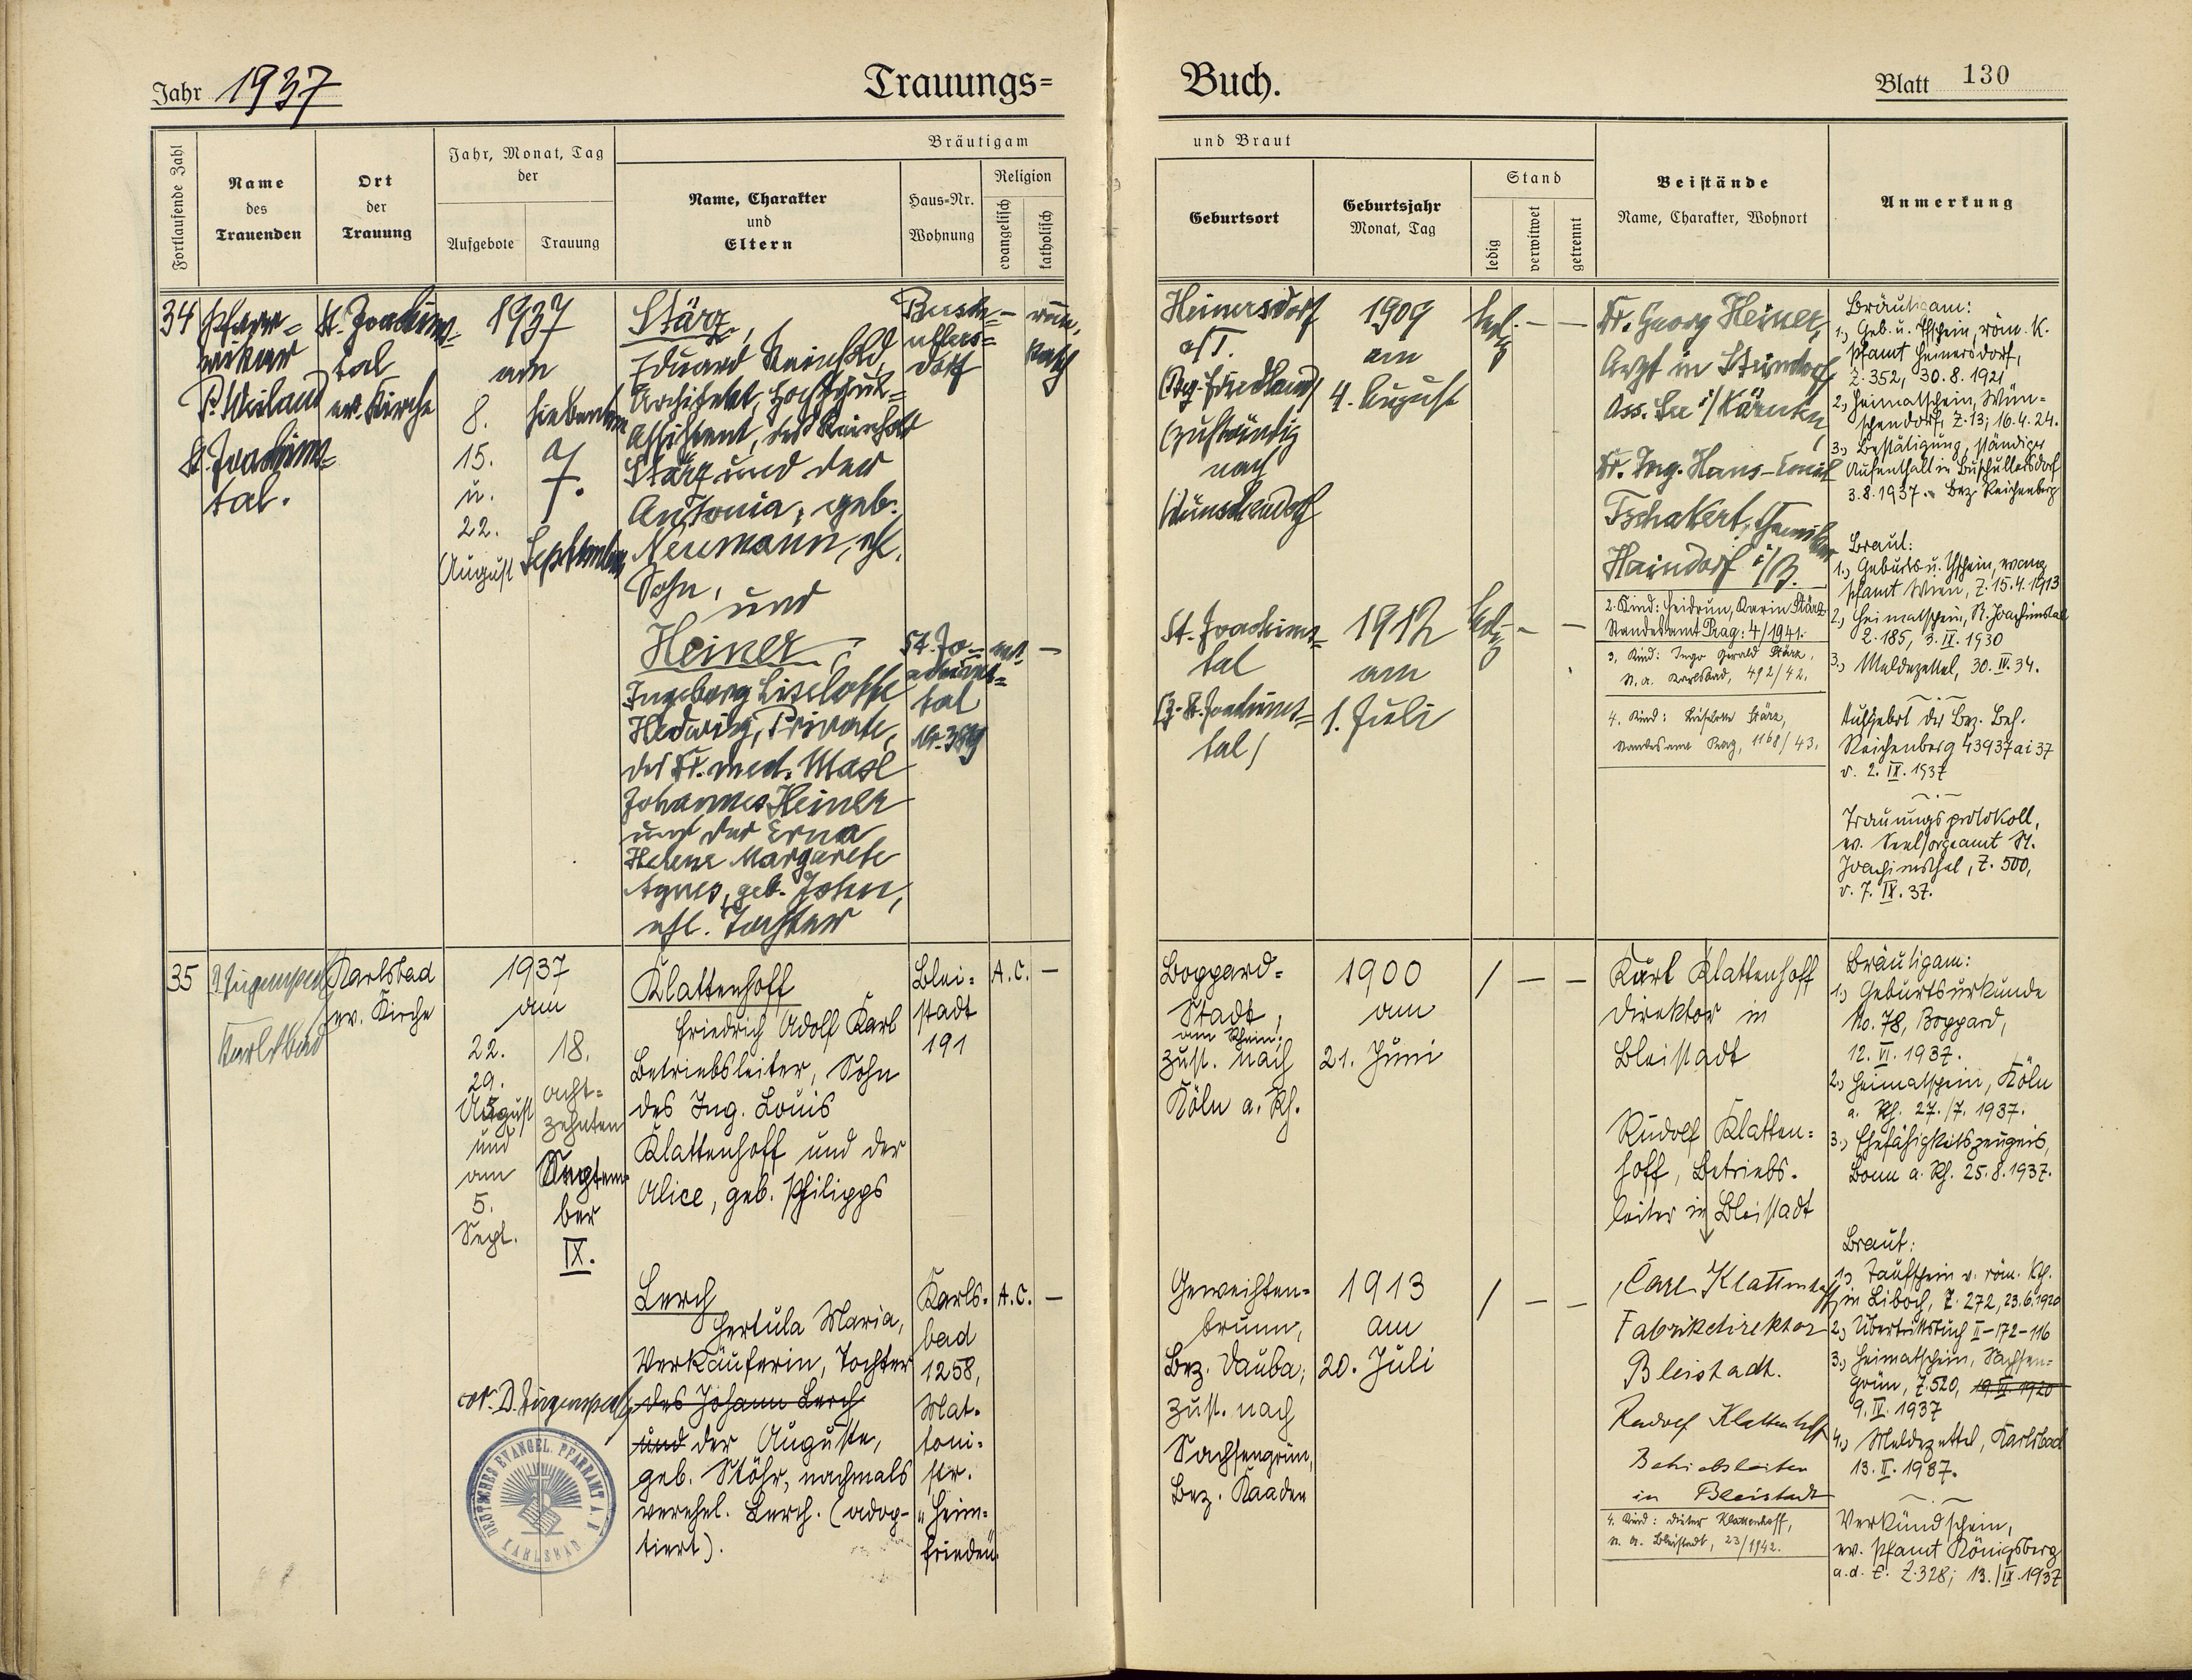 Jahr 1937
Trauungs=
Buch.
Blatt 130
Fortlaufende Zahl
Name
des
Trauenden
Ort
der
Trauung
Jahr, Monat, Tag
der
Aufgebote
Trauung
Bräutigam
Name, Charakter
und
Eltern
Haus-Nr.
Wohnung
Religion
evangelisch
katholisch
und Braut
Geburtsort
Geburtsjahr
Monat, Tag
Stand
ledig
verwitwet
getrennt
Beistände
Name, Charakter, Wohnort
Anmerkung
34
Pfarr=
vikar
P. Weiland
St. Joachims=
tal.
St. Joachims=
tal
ev. Kirche
1937
am
8.
15.
u.
22.
August
siebenten
7.
September
Stärz,
Eduard Reinhold,
Architekt, Hochschul=
Assistent, des Reinhold
Stärz und der
Antonia, geb.
Neumann, ehl.
Sohn,
und
Heiner,
Ingeborg Liselotte
Hedwig, Private,
des Dr. med.
Johannes Heiner
und der Erna
Helene Margarete
Agnes, geb. John,
ehl. Tochter
Busch=
ullers=
dorf
St. Jo=
achims=
tal
–
röm.
kath
ev.
–
Heinersdorf
a/T.
(Bez. Friedland)
(zuständig
nach
Wünschendorf
St. Joachims=
tal
(Z. St. Joachims=
tal)
1909
am
4. August
1912
am
1. Juli
led. – –
ledig – –
Dr. Georg Heiner,
Arzt in Steindorf
Oss. See i/Kärnten,
Dr. Ing. Hans-Emil
Tschakert, Chemiker
Haindorf i/B.
2. Kind: Heidrun, Karin Stärz
Standesamt Prag: 4/1941.
3. Kind: Ingo Gerald Stärz,
St. A. Karlsbad, 492/42.
4. Kind: Liselotte Stärz,
Standesamt Prag, 1168/43.
Bräutigam:
1.) Geb. u. Tfschein, röm. K.
Pfamt Heinersdorf,
Z. 352, 30.8.1921
2.) Heimatschein, Wün=
schendorf, Z. 13; 16.4.24.
3.) Bestätigung, ständiger
Aufenthalt in Buschullersdorf
3.8.1937. Bez. Reichenberg
Braut:
1.) Geburts u. Tfschein, evang.
Pfamt Wien, Z. 15.4.1913
2.) Heimatschein, St. Joachimstal
Z. 185, 3.IX.1930
3.) Meldezettel, 30.IV.34.
Aufgebot der Bez. Beh.
Reichenberg 43937 ai 37
v. 2.IX.1937
Trauungsprotokoll,
ev. Seelsorgeamt St.
Joachimsthal, Z. 500,
v. 7.IX.37.
35
Karlsbad
Karlsbad
ev. Kirche
1937
am
22.
29.
August
und
am
5.
Sept.
18.
acht=
zehnten
Septem=
ber
IX.
Klattenhoff
Friedrich Adolf Karl
Betriebsleiter, Sohn
des Ing. Louis
Klattenhoff und der
Alice, geb. Philipps
Lerch
Hertula Maria,
Verkäuferin, Tochter
des Johann Lerch
und der Auguste,
geb. Stöhr, nachmals
verehel. Lerch. (adop-
tiert).
Blei=
stadt
191
A. C. –
Karls=
bad
1258,
Mat=
toni=
str.
„Heim=
frieden“
A. C. –
DEUTSCHES EVANGEL. PFARRAMT A. B.
KARLSBAD
Boppard=
Stadt,
am Rhein;
zust. nach
Köln a. Rh.
1900
am
21. Juni
/ – –
Geweihten=
brunn,
Bez. Dauba;
zust. nach
Sachsengrün,
Bez. Kaaden
1913
am
20. Juli
/ – –
Karl Klattenhoff
Direktor in
Bleistadt
Rudolf Klatten=
hoff, Betriebs=
leiter in Bleistadt
Carl Klattenhoff
Fabrikdirektor
Bleistadt.
Rudolf Klattenhoff
Betriebsleiter
in Bleistadt
1. Kind: Dieter Klattenhoff,
St. A. Bleistadt, 23/1942.
Bräutigam:
1.) Geburtsurkunde
No. 78, Boppard,
12.VI.1937.
2.) Heimatschein, Köln
a. Rh. 27./7. 1937.
3.) Ehefähigkeitszeugnis,
Bonn a. Rh. 25.8.1937.
Braut:
1.) Taufschein v. röm. Kth.
in Liboch, Z. 272, 23.6.1920
2.) Übertrittsbuch II-172-116
3.) Heimatschein, Sachsen=
grün, Z. 520, 19.VI.1920
9.IV.1937
4.) Meldezettel, Karlsbad
13.II.1937.
Verkündschein,
ev. Pfamt Königsberg
a.d. E. Z. 328; 13./IX.1937